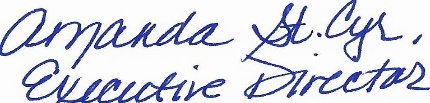 Amanda St. Cyr,
Executive Director